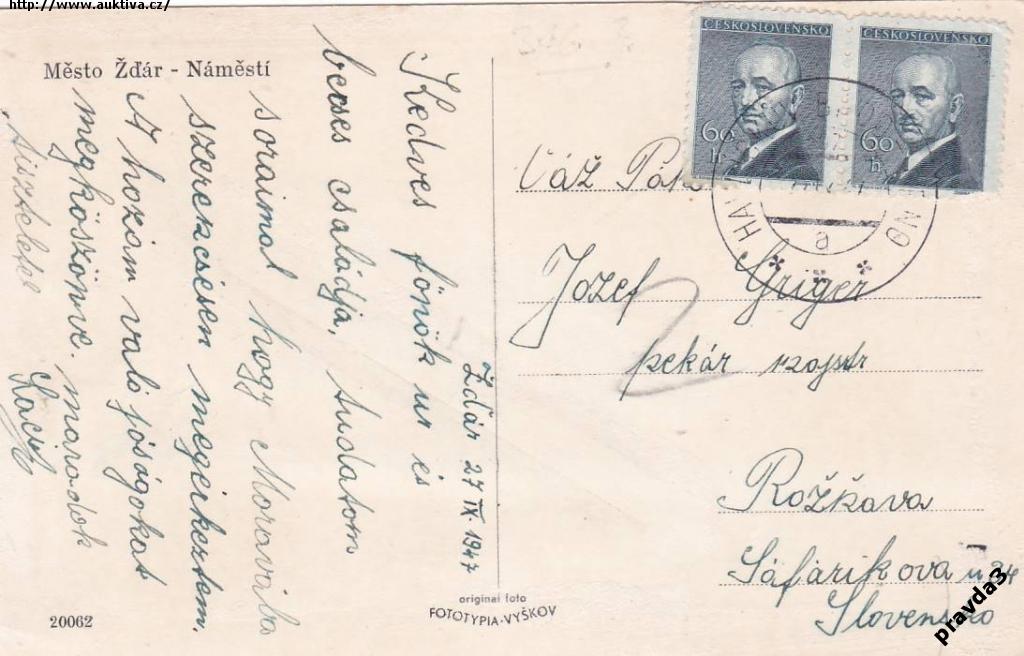 http://www.auktiva.cz/
Město Žďár - Náměstí
Žďár 27 IX. 1947
Kedves főnök ur és
becses családja, tudatom
soraimal hogy Moravába
szerencsésen megérkeztem.
A hozám való jóságokat
megköszönve. maradok
tisztelettel
20062
original foto
FOTOTYPIA-VYŠKOV
ČESKOSLOVENSKO
60
h
ČESKOSLOVENSKO
60
h
a
Váž
Jozef Griger
pekár
Rožňava
Šafárikova u 34
Slovensko
pravda3